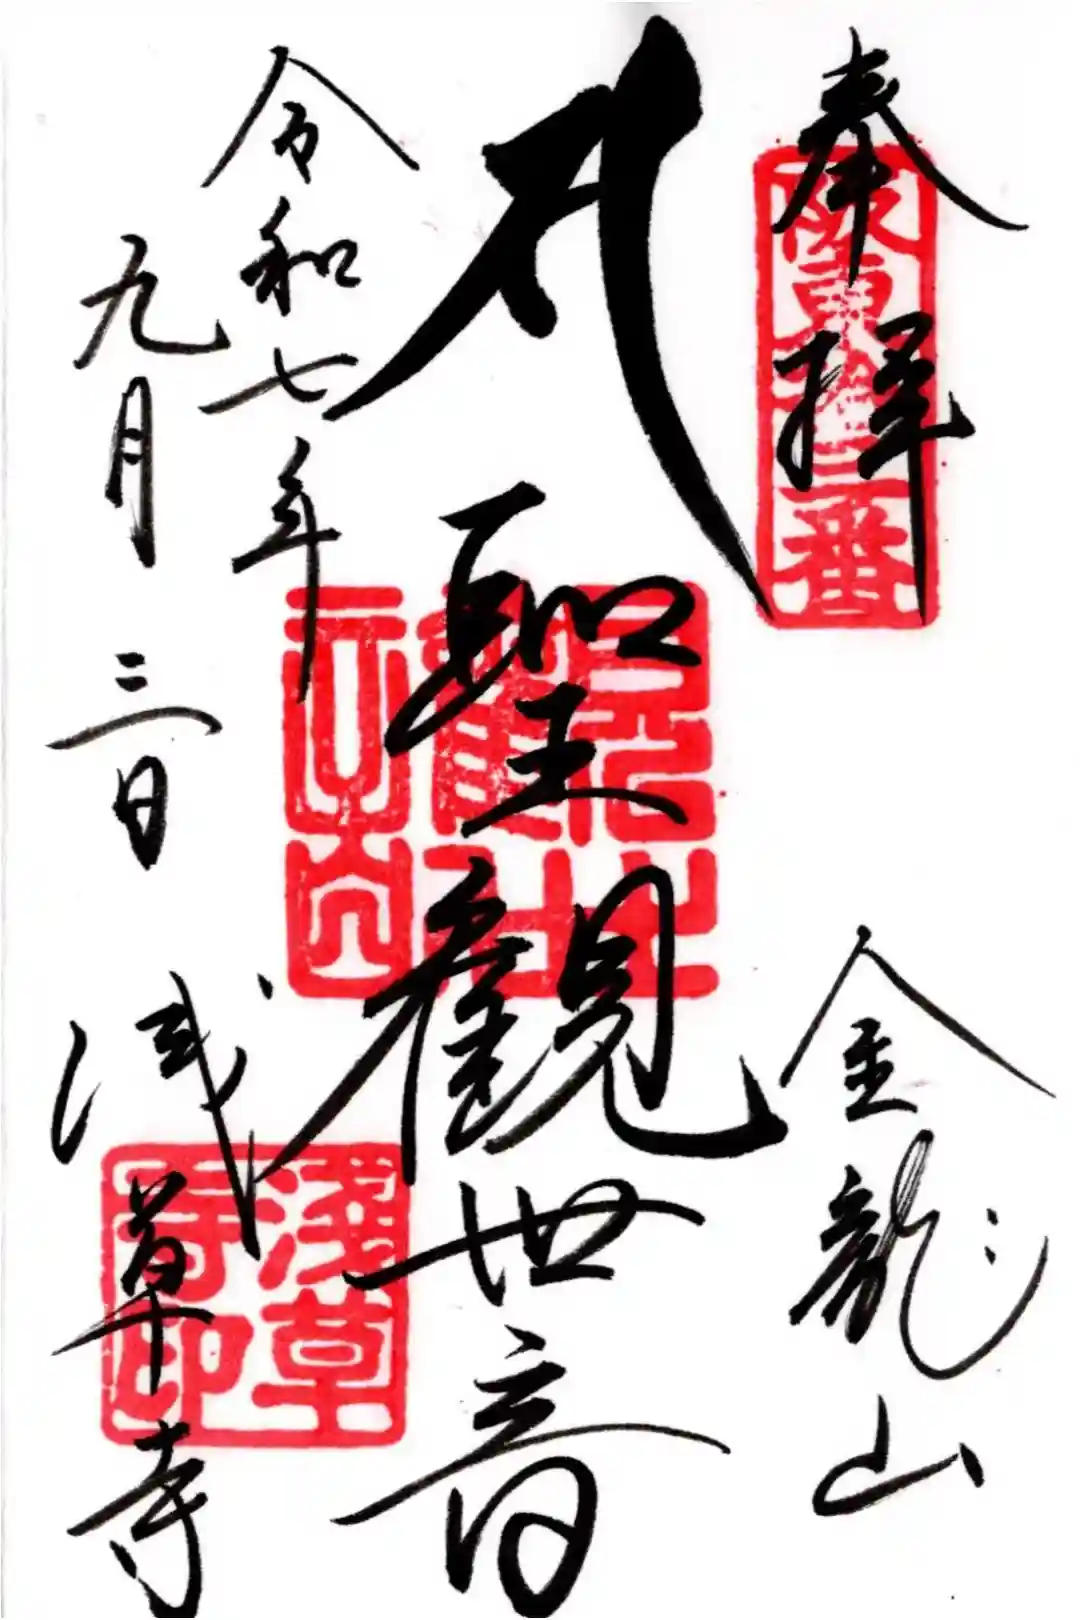 奉拝
坂東拾三番
金龍山
聖観世音
令和七年
九月三日
浅草寺
淺草寺印